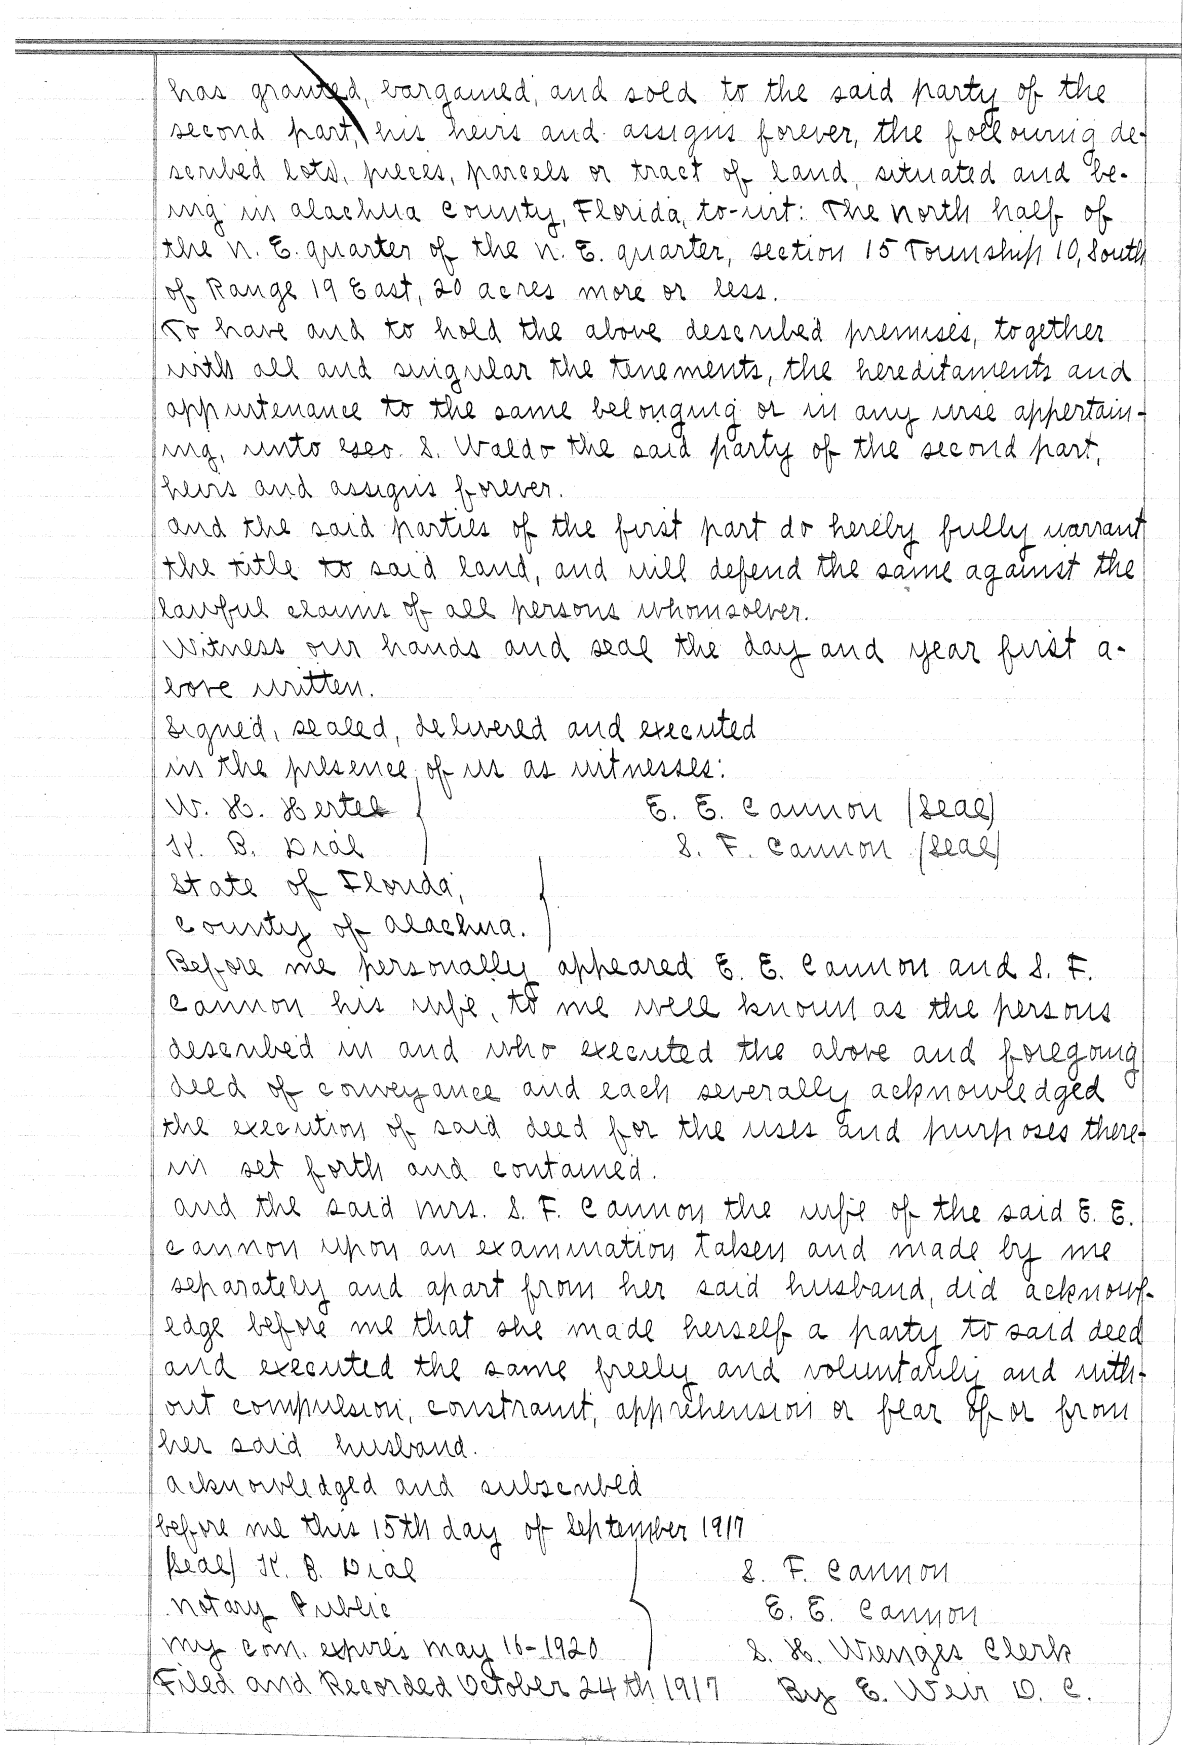 has granted, bargained, and sold to the said party of the
second part, his heirs and assigns forever, the following de-
scribed lots, pieces, parcels or tract of land, situated and be-
ing in Alachua County, Florida, to-wit: The North half of
the N. E. quarter of the N. E. quarter, section 15 Township 10, South
of Range 19 East, 20 acres more or less.
To have and to hold the above described premises, together
with all and singular the tenements, the hereditaments and
appurtenance to the same belonging or in any wise appertain-
ing, unto Geo. S. Waldo the said party of the second part,
heirs and assigns forever.
And the said parties of the first part do hereby fully warrant
the title to said land, and will defend the same against the
lawful claims of all persons whomsoever.
Witness our hands and seal the day and year first a-
bove written.
Signed, sealed, delivered and executed
in the presence of us as witnesses:
W. H. Hertel E. E. Cannon (Seal)
K. B. Dial S. F. Cannon (Seal)
State of Florida,
County of Alachua.
Before me personally appeared E. E. Cannon and S. F.
Cannon his wife, to me well known as the persons
described in and who executed the above and foregoing
deed of conveyance and each severally acknowledged
the execution of said deed for the uses and purposes there-
in set forth and contained.
And the said Mrs. S. F. Cannon the wife of the said E. E.
Cannon upon an examination taken and made by me
separately and apart from her said husband, did acknowl-
edge before me that she made herself a party to said deed
and executed the same freely and voluntarily and with-
out compulsion, constraint, apprehension or fear of or from
her said husband.
Acknowledged and subscribed
before me this 15th day of September 1917
Seal) K. B. Dial S. F. Cannon
Notary Public E. E. Cannon
My com. expires May 16-1920 S. H. Wienges Clerk
Filed and Recorded October 24th 1917 By E. Weir D. C.